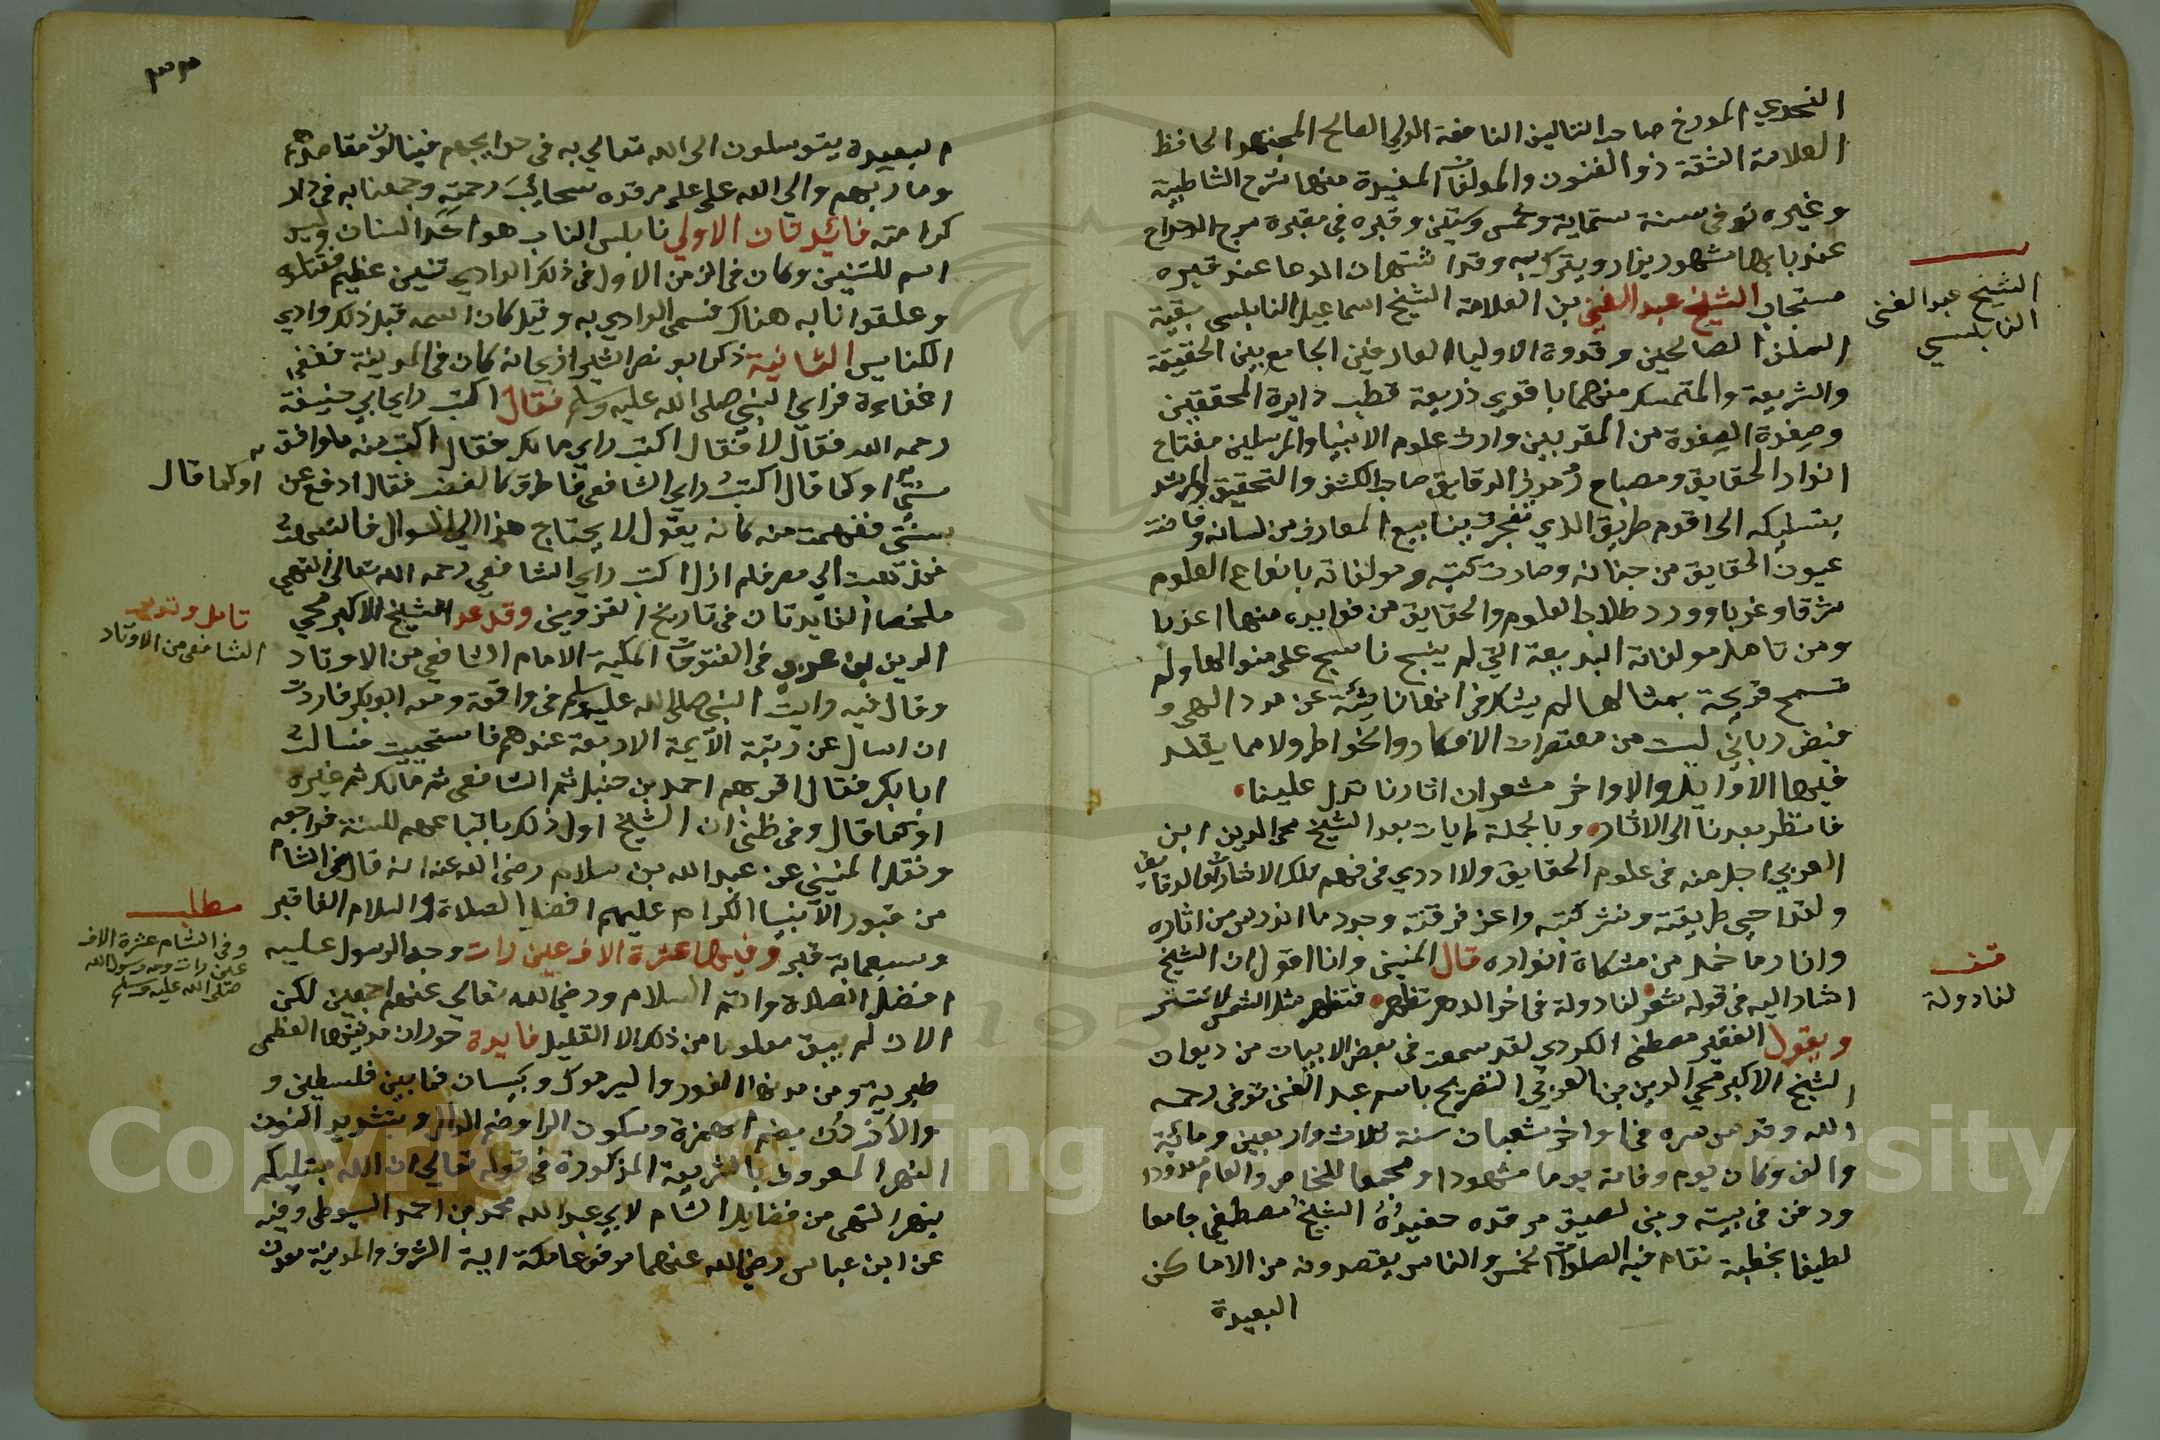 النحوي المورخ صاحب التاليف النافعة الولي الصالح المجتهد الحافظ
العلامة الثقة ذو الفنون والمولفات المفيدة منها شرح الشاطبية
وغيره توفي سنة ستماية وخمس وستين وقبره في مقبرة مرج الدحداح
عند بابها مشهور يزار ويتبرك به وقد اشتهر ان الدعا عند قبره
مستجاب الشيخ عبد الغني بن العلامة الشيخ اسماعيل النابلسي بقية
السلف الصالحين وقدوة الاوليا العارفين الجامع بين الحقيقة
والشريعة والمتمسك منهما باقوي ذريعة قطب دايرة المحققين
وصفوة الصفوة من المقربين وارث علوم الانبيا والمرسلين مفتاح
انوار الحقايق ومصباح رموز الدقايق صاحب الكشف والتحقيق المرشد
بتسليكه الى اقوم طريق الذي تفجرت ينابيع المعارف من لسانه وفاضت
عيون الحقايق من جنانه وصارت كتبه ومولفاته بانواع العلوم
شرقا وغربا وورد طلاب العلوم والحقايق من فوايده منها اعذبا
ومن تامل مولفاته البديعة التي لم ينسج ناسج على منوالها ولم
تسمح قريحة بمثالها لم يشك في انها ناشئة عن مدد الهي و
فيض رباني ليست من معتصرات الافكار والخواطر ولا مما يقلد
فيها الاوايل والاواخر مشعر ان اثارنا تدل علينا
فانظر بعدنا الى الاثار وبالجملة لم يات بعد الشيخ محي الدين ابن
العربي اجل منه في علوم الحقايق ولا ادري في فهم تلك الاشارات والدقايق
ولقد احيى طريقته ونشر كتبه واعز فرقته وجدد ما اندرس من اثاره
وانار ما خمد من مشكاة انواره قال المنيني وانا اقول ان الشيخ
اشار اليه في قوله شعر لنا دولة في اخر الدهر تظهر فتظهر مثل الشمس لا تتستر
ويقول الفقير مصطفى الكردي لقد سمعت في بعض الابيات من ديوان
الشيخ الاكبر محي الدين بن العربي التصريح باسم عبد الغني توفي رحمه
الله وقدس سره في اواخر شعبان سنة ثلاث واربعين ومائة
والف وكان يوم وفاته يوما مشهودا ومجمعا للخاص والعام معدودا
ودفن في بيته وبنى لصيق مرقده حفيده الشيخ مصطفى جامعا
لطيفا بخطبة تقام فيه الصلوات الخمس والناس يقصدونه من الاماكن
البعيدة
الشيخ عبد الغني
النابلسي
قف
لنا دولة
٣٣
البعيدة يتوسلون الى الله تعالي به في حوايجهم فينالون مقاصدهم
وماربهم والي الله على على مرقده سحائب رحمته وجمعنا به في دار
كرامته فائدتان الاولي نابلس الناب هو احد السنان وليس
اسم للتنين وكان في الزمن الاول في ذلك الوادي تنين عظيم فقتلوه
وعلقوا نابه هناك فسمى الوادي به وقيل كان اسمه قبل ذلك وادي
الكنايس الثانية ذكر ابو نصر انه كان في المدينة فغفى
اغفاءة فراي النبي صلى الله عليه وسلم فقال اكتب راي ابي حنيفة
رحمه الله فقال لا فقال اكتب راي مالك فقال اكتب منه ما وافق
سنتي او كما قال اكتب راي الشافعي فاطرق كالمغضب فقال ادفع عن
سنتي ففهمت منه كانه يقول لا يحتاج هذا الي السوال فانتبهت
فذهبت الي مصر فلم ازل اكتب راي الشافعي رحمه الله تعالى انتهى
ملخصا الفايدتان في تاريخ القزويني وقد عد الشيخ الاكبر محي
الدين بن عربي في الفتوحات المكية الامام الشافعي من الاوتاد
وقال فيه ورايت النبي صلى الله عليه وسلم في واقعة ومعه ابو بكر فاردت
ان اسال عن رتبة الايمة الاربعة عندهم فاستحييت فسالت
ابا بكر فقال اقربهم احمد بن حنبل ثم الشافعي ثم مالك ثم غيره
او كما قال وفي ظني ان الشيخ اول ذلك باتباعهم للسنة فراجعه
ونقل المنيني عن عبد الله بن سلام رضي الله عنه انه قال في الشام
من قبور الانبيا الكرام عليهم افضل الصلاة والسلام الفا قبر
وسبعماية قبر وفيها عشرة الاف عين رات وجه الرسول عليه
افضل الصلاة واتم السلام ورضي الله تعالي عنهم اجمعين لكن
الان لم يبق معلوما من ذلك الا القليل فايدة حوران مدينتها العظمى
طبرية ومن مدنها الغور واليرموك وبيسان فما بين فلسطين و
والاردن بضم الهمزة وسكون الرا وضم الدال وبتشديد النون
النهر المعروف بالشريعة المذكورة في قوله تعالي ان الله مبتليكم
بنهر انتهى من فضايل الشام لابي عبد الله محمد بن احمد السيوطي وفيه
عن ابن عباس رضي الله عنهما مرفوعا مكة اية الشرف والمدينة معدن
او كما قال
الشافعي من الاوتاد
مطلب
وفي الشام عشرة الاف
عين رات وجه رسول الله
صلى الله عليه وسلم
Copyright © King Saud University
195